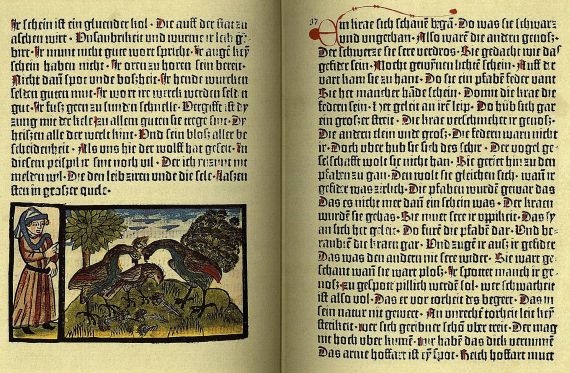 Ir schein ist ein gluender kol · Die auff der stat zu
aschen wirt · vnd
wirt · Ir munt nicht gute wort spricht · Ir augē keȳ
schein haben nicht · Ir oren zu horen sein bereit ·
Nicht dañ spot vnde boszheit · Ir hende wurcken
selden guten mut · Ir wort ire werck werden selden
gut · Ir fusz geen zu sunden schnelle · Vergifft ist
zung mit der kele · Zu allem guten sie trege sint · Dy
heissen alle der werlt kint · Vnd sein blosz aller be
scheidenheit · Als vns hie der wolff hat geseit · In
disem peispil ir sint noch vil · Der ich nv nit
melden wil · Die den leib ziren vnde die sele · Lassen
sten in groszer quele ·
37
Ein krae sich schauē begā · Do was sie schwarz
vnd vngethan · Also warē die andern genosz ·
Der schwerze sie sere verdrosz · Sie gedacht wie das
gefider sein · Mocht gewynnē lichten schein · Auff der
wart kam sie zu hant · Do sie ein pfabē feder vant
Sie het mancher hāde schein · Domit die krae die
federn sein · Her geleit an irē leip · Do hub sich gar
ein groszer streit · Die krae verschmehet ir genosz ·
Die andern clein vnde grosz · Die federn warn nicht
ir · Doch vber hub sie sich des schir · Der vogel ge
selschafft wolt sie nicht han · Sie geriet hin zu den
pfaben zu gan · Den wolt sie gleichen sich · wañ ir
gefider was zirlich · Die pfaben wurdē gewar das
Das es nicht mer dañ ein schein was · Der kraen
wurdē sie gehas · Sie must sere ir vppikeit · Das sy
an sich het geleit · Do furē die pfaben dar · Vnd be-
raubtē die kraen gar · Vnd zugē ir ausz ir gefider
Das was den andern nit sere wider · Sie wart ge
schant wañ sie wart plosz · Ir spottet manch ir ge
nosz · zu gespot pillich werdē sol · wer schwarheit
ist also vol · Das er vor torheit des begert · Das im
sein natur nit gewert · An vnrecht torheit leit
streitikeit · wer sich gerühmet schō vber treit · Der mag
nit hoch vber kumē · Nit habē das dich vernomē
Das arme hoffart ist eȳ spot · Reich hoffart mutt